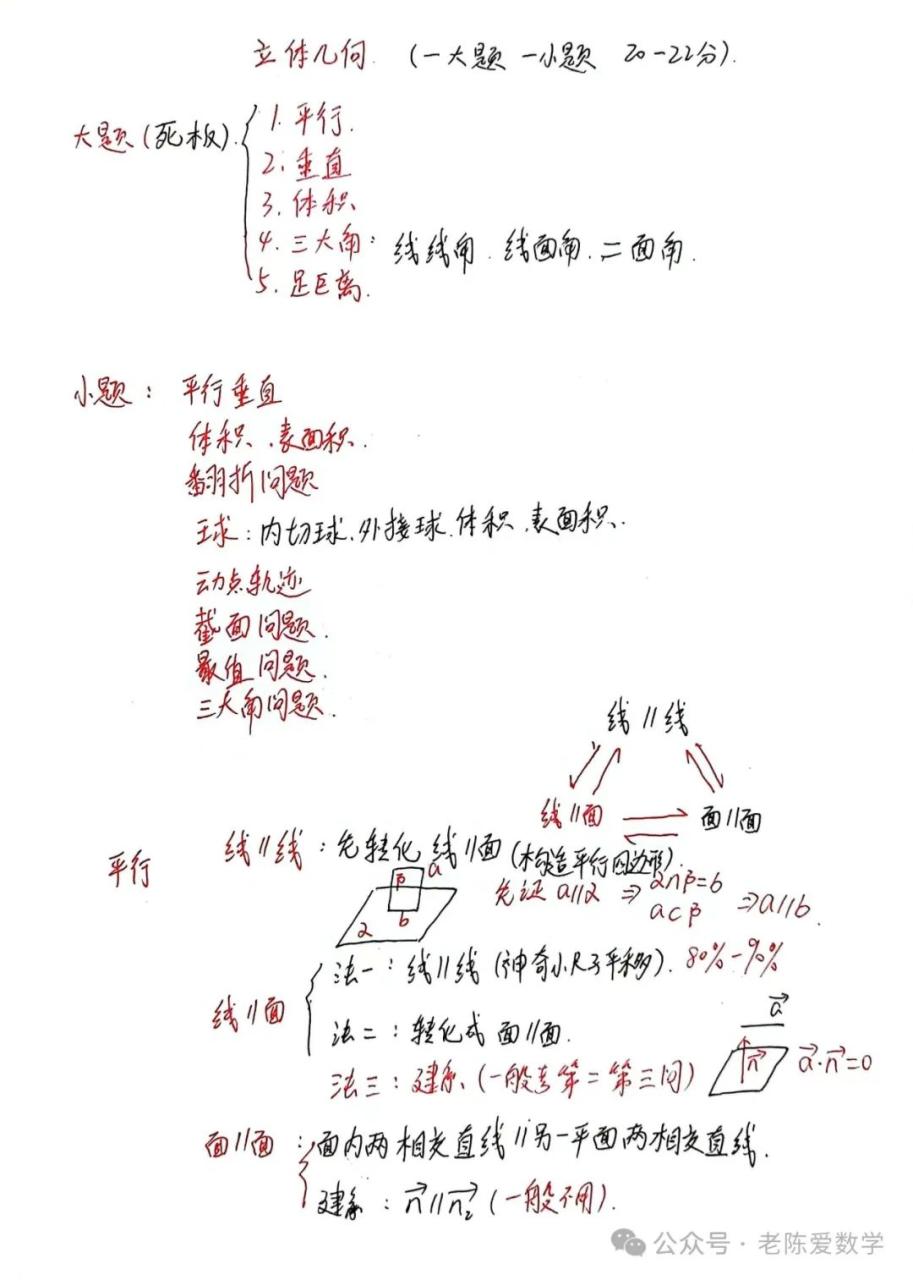 立体几何. (一大题 一小题 20-22分).
大题(死板).
1. 平行.
2. 垂直
3. 体积
4. 三大角: 线线角. 线面角. 二面角.
5. 距离.
小题: 平行垂直
体积、表面积.
翻折问题
球: 内切球、外接球、体积、表面积.
动点轨迹
截面问题.
最值问题.
三大角问题.
线∥线
线∥面
面∥面
平行
线∥线: 先转化 线∥面 (构造平行四边形).
β a
α b
先证 a∥α ⇒ α∩β=b
a⊂β ⇒a∥b.
线∥面
法一: 线∥线 (神奇小尺子平移). 80%-90%
法二: 转化成 面∥面.
法三: 建系 (一般考第二第三问)
a⃗
n⃗
a⃗·n⃗=0
面∥面: 面内两相交直线∥另一平面两相交直线.
建系: n⃗∥n⃗₂ (一般不用).
公众号·老陈爱数学